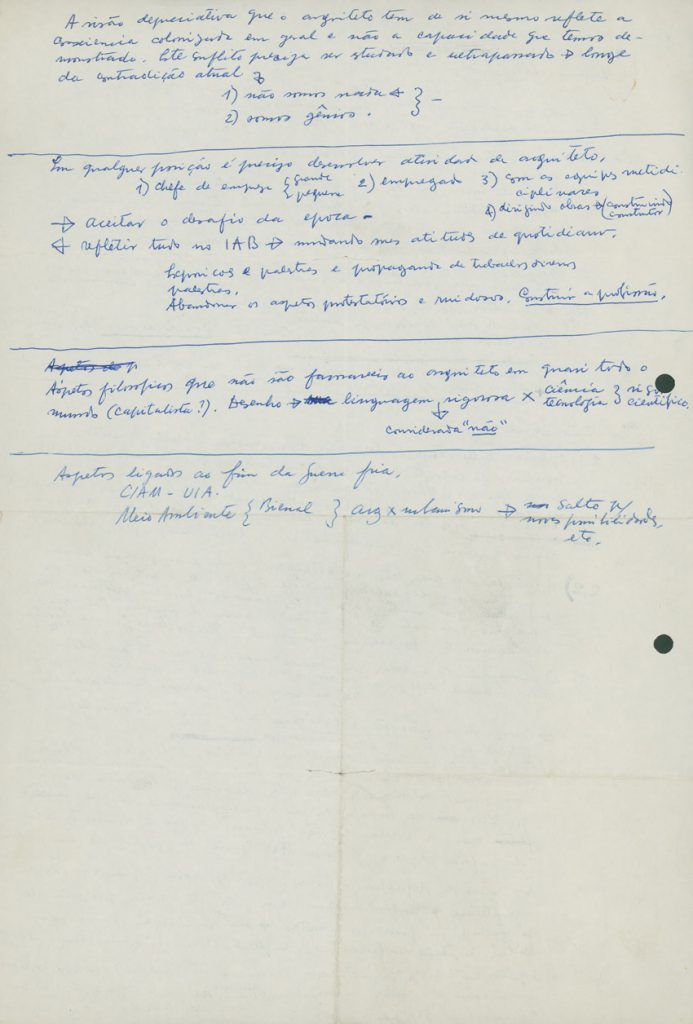 A visão depreciativa que o arquiteto tem de si mesmo reflete a
consciência colonizada em geral e não a capacidade que temos de-
monstrado. Este conflito precisa ser estudado e ultrapassado → longe
da contradição atual
1) não somos nada
2) somos gênios. } —
Em qualquer posição é preciso desenvolver atividade de arquiteto.
1) chefe de empresa { grande pequena 2) empregado 3) com as equipes
ciplinares
4) dirigindo obras → (construindo construtor)
→ aceitar o desafio da epoca –
refletir tudo no IAB → mudando atitudes de quotidiano.
e palestras e propaganda de trabalhos diversos
palestras.
Abandonar os aspetos protestatórios e ruidosos. Construir a profissão.
Aspetos do p
Aspetos filosoficos que não são favoraveis ao arquiteto em quasi todo o
mundo (capitalista?). Desenho → linguagem rigorosa × ciência tecnologia } rigor científico.
↓
considerada "não"
Aspetos ligados ao fim da guerra fria.
CIAM – UIA.
Meio Ambiente { Bienal } arq × urbanismo → salto p/
novas possibilidades,
etc.